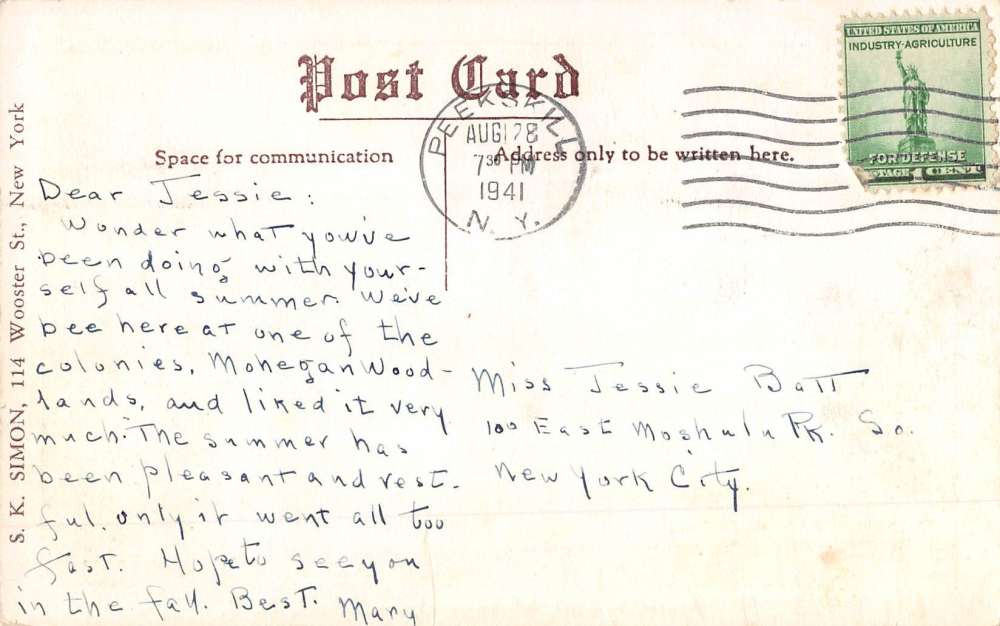 Post Card
Space for communication
Address only to be written here.
S. K. SIMON, 114 Wooster St., New York
PEEKSKILL
AUG 28
7 30 PM
1941
N. Y.
UNITED STATES OF AMERICA
INDUSTRY·AGRICULTURE
FOR DEFENSE
1 CENT
Dear Jessie:
Wonder what you've
been doing with your-
self all summer. We've
bee here at one of the
colonies, Mohegan Wood-
lands, and liked it very
much. The summer has
been pleasant and rest-
ful, only it went all too
fast. Hope to see you
in the fall. Best. Mary
Miss Jessie Batt
100 East Moshulu Pk. So.
New York City.